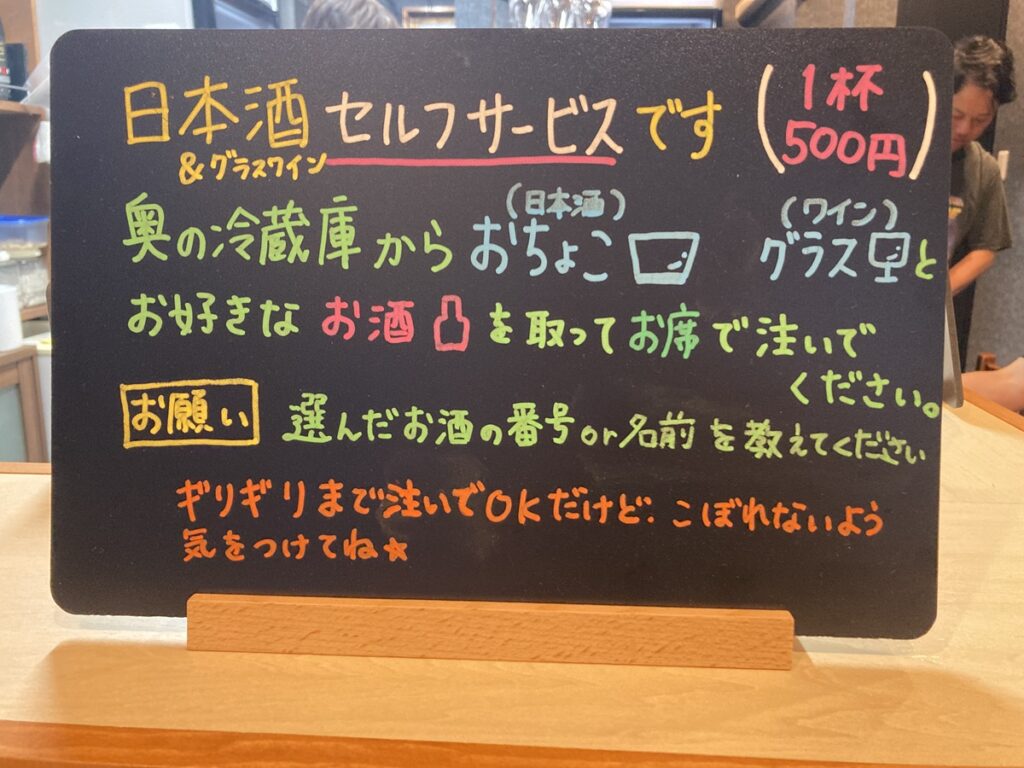 日本酒 セルフサービスです (1杯 500円)
&グラスワイン
(日本酒) (ワイン)
奥の冷蔵庫から おちょこ グラス と
お好きな お酒 を取ってお席で注いで
ください。
お願い 選んだお酒の番号or名前を教えてください
ギリギリまで注いでOKだけど、こぼれないよう
気をつけてね★